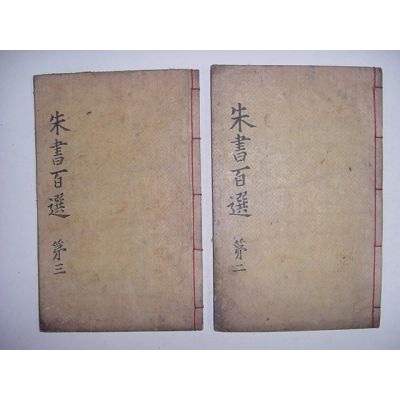 朱書百選 第二
朱書百選 第三